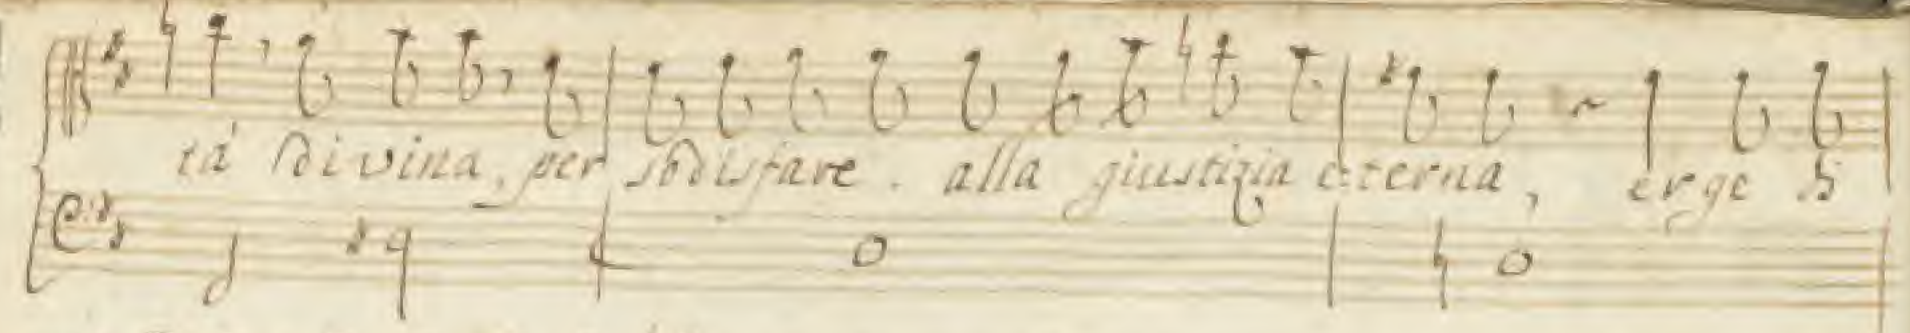 tà divina, per sodisfare. alla giustizia eterna, erge di